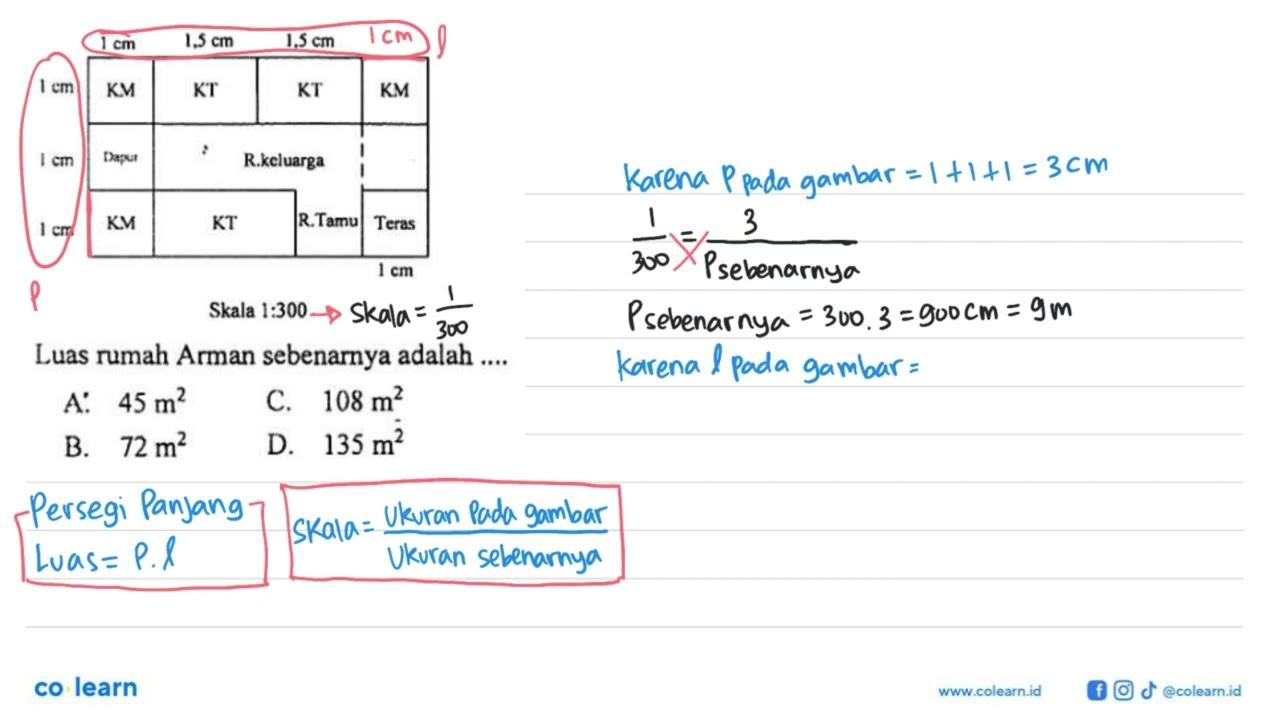 1 cm 1,5 cm 1,5 cm 1 cm l
1 cm KM KT KT KM
1 cm Dapur R.keluarga
1 cm KM KT R.Tamu Teras
1 cm
p
Skala 1:300 → Skala = 1/300
Luas rumah Arman sebenarnya adalah ....
A. 45 m² C. 108 m²
B. 72 m² D. 135 m²
Persegi Panjang
Luas = P.l
Skala = Ukuran Pada gambar / Ukuran sebenarnya
Karena P pada gambar = 1+1+1 = 3 cm
1/300 = 3/Psebenarnya
Psebenarnya = 300.3 = 900 cm = 9m
karena l pada gambar =
co learn
www.colearn.id @colearn.id